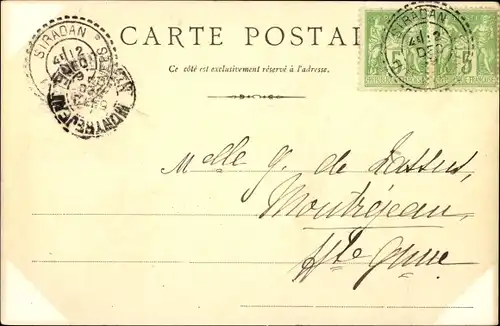 CARTE POSTALE
Ce côté est exclusivement réservé à l'adresse.
SIRADAN
SIRADAN
5 5
Melle g. de Lassus
Montréjeau
Hte Gnne